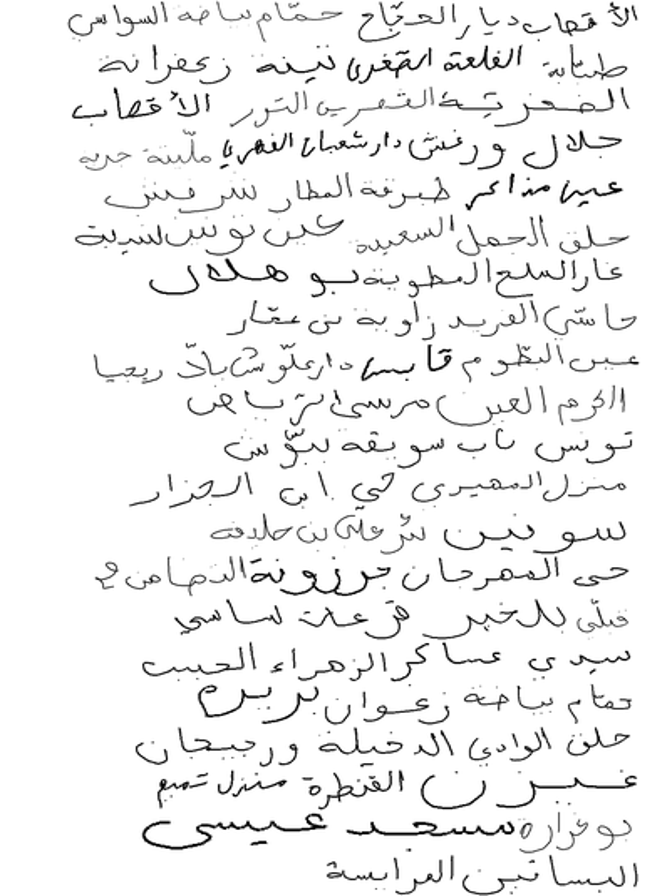 الأقصاب ديار الحجّاج حمّام بياضة السواسي
طبّابة القلعة الصّغرى تينة زعفرانة
الصخرية القصرين التور الأقصاب
جلال ورغش دار شعبان الفهري ملّيتة جربة
عين مذاكر طبرقة المطار شرفش
حلق الجمل السعيدة عين تونس لسدية
غار الملح المطوية بو هلال
حاسّي الفريد زاوية بن عمّار
عين البطّوم قابس دار علّوش باذّ ريحيا
الكرم العين مرسى الرّياض
تونس باب سويقة ببّوش
منزل المهيري حي ابن الجزار
سونين بئر علي بن خليفة
حي المهرجان جرزونة التضامن 2
قبلّي بلخير قرعة ساسي
سيدي عساكر الزهراء الحبيب
حمّام بياضة زغوان بربرم
حلق الوادي الدخيلة وريحان
غيزن القنطرة منزل تميم
بوغرارة مسجد عيسى
البساتين العرايسة